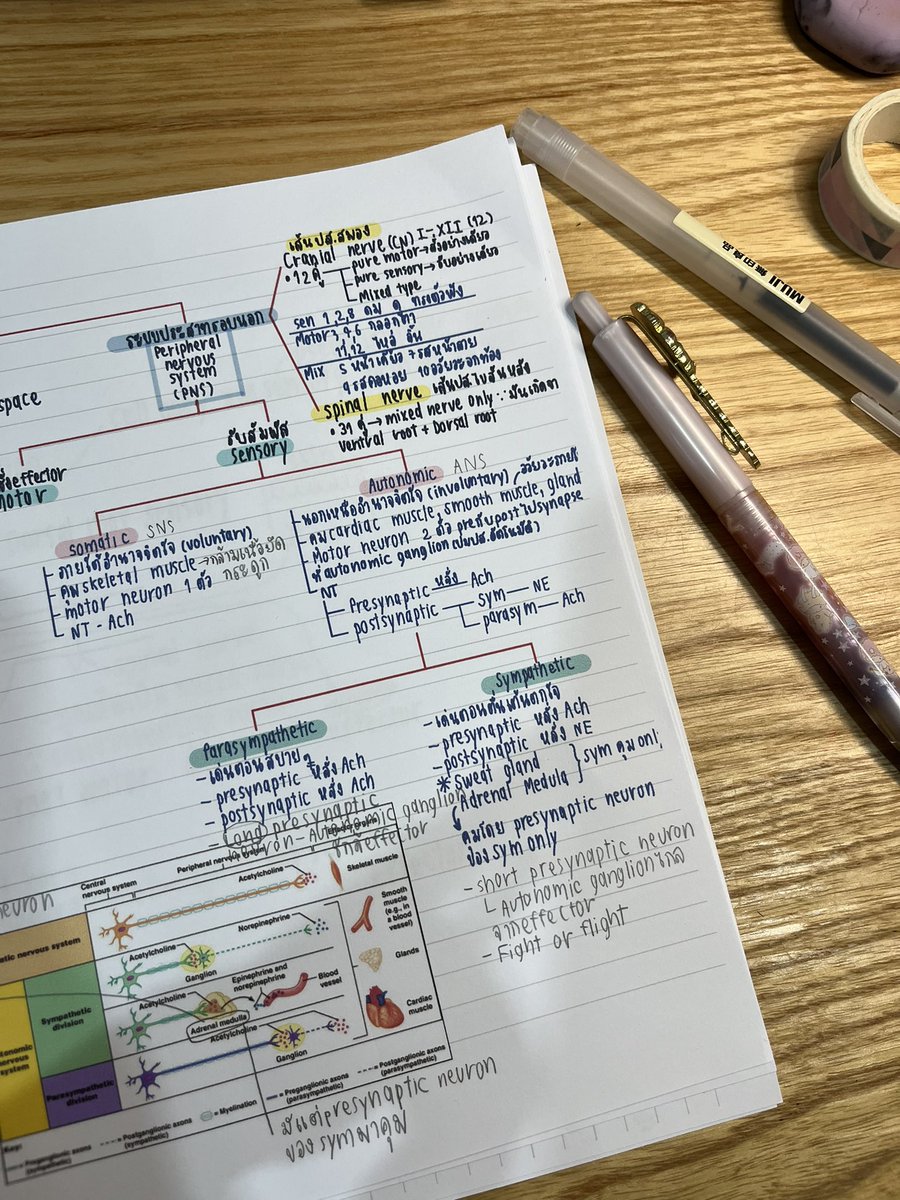 เส้นปส.สมอง
Cranial nerve (CN) I-XII (12)
• 12 คู่
pure motor → สั่งอย่างเดียว
pure sensory → รับอย่างเดียว
Mixed type
sen 1,2,8 ดม ดู
Motor 3,4,6 กลอกตา
11,12 ไหล่ ลิ้น
Mix 5 หน้าเคี้ยว 7 รสหน้าตาย
9 รสคอหอย 10 อวัยวะช่องท้อง
spinal nerve เส้นปส.ไขสันหลัง
• 31 คู่ → mixed nerve only ∵ มันเกิดจาก
ventral root + Dorsal root
ระบบประสาทรอบนอก
Peripheral
nervous
system
(PNS)
space
effector
motor
รับสัมผัส
sensory
somatic SNS
ภายใต้อำนาจจิตใจ (voluntary)
คุม skeletal muscle → กล้ามเนื้อยึด
กระดูก
motor neuron 1 ตัว
NT - Ach
Autonomic ANS
นอกเหนืออำนาจจิตใจ (involuntary)
คุม cardiac muscle, smooth muscle, gland
Motor neuron 2 ตัว pre กับ post ไป synapse
ที่ autonomic ganglion
NT
Presynaptic หลั่ง Ach
postsynaptic
sym — NE
parasym — Ach
Parasympathetic
- เด่นตอนสบายๆ
- presynaptic หลั่ง Ach
- postsynaptic หลั่ง Ach
- Long presynaptic
neuron - Autonomic ganglion
ใกล้ effector
Sympathetic
- เด่นตอนตื่นเต้นตกใจ
- presynaptic หลั่ง Ach
- postsynaptic หลั่ง NE
* Sweat gland
Adrenal Medula } sym คุม only
คุมโดย presynaptic neuron
ของ sym only
- short presynaptic neuron
Autonomic ganglion ไกล
จาก effector
- Fight or flight
neuron
Central
nervous system
Peripheral nervous system
Acetylcholine
Skeletal muscle
Smooth
muscle
(e.g., in
a blood
vessel)
Norepinephrine
Acetylcholine
Ganglion
Glands
Epinephrine and
norepinephrine
Acetylcholine
Blood
vessel
Adrenal medulla
Cardiac
muscle
Acetylcholine
Ganglion
Sympathetic
division
Parasympathetic
division
nervous
system
Key:
= Preganglionic axons
(sympathetic)
= Postganglionic axons
(sympathetic)
= Myelination
= Preganglionic axons
(parasympathetic)
= Postganglionic axons
(parasympathetic)
มีแต่ presynaptic neuron
ของ sym มาคุม
MUJI 無印良品